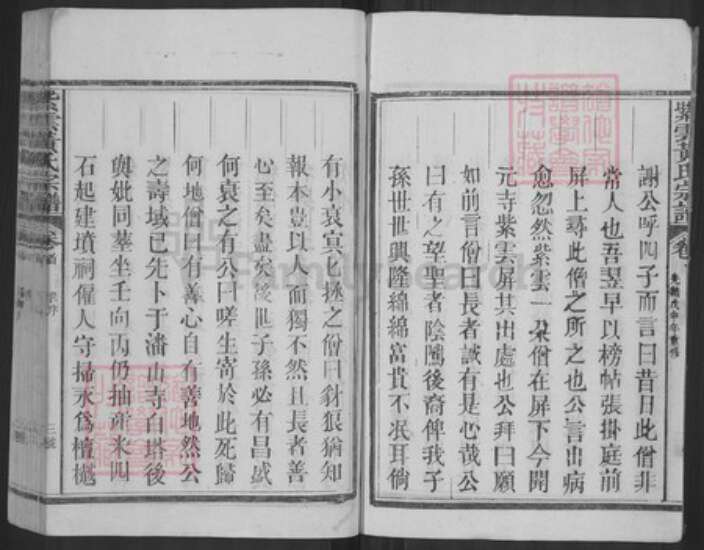 紫雲黃氏宗譜
卷
光緒戊申年重修
謝公呼四子而言曰昔日此僧非
常人也吾翌早以榜帖張掛庭前
屏上尋此僧之所之也公言出病
愈忽然紫雲一朵僧在屏下今開
元寺紫雲屏其出處也公拜曰願
如前言僧曰長者誠有是心哉公
曰有之望聖者陰隲後裔俾我子
孫世世興隆綿綿富貴不泯耳倘
有小衰冥匕拯之僧曰豺狼猶知
報本豈以人而獨不然且長者善
心至矣盡矣後世子孫必有昌盛
何衰之有公曰嗟生寄於此死歸
何地僧曰有善心自有善地然公
之壽域已先卜于潘山寺白塔後
與妣同塋坐壬向丙仍抽產米四
石起建墳祠僱人守掃永爲檀樾
紫雲黃氏宗譜
卷首
三
FamilySearch